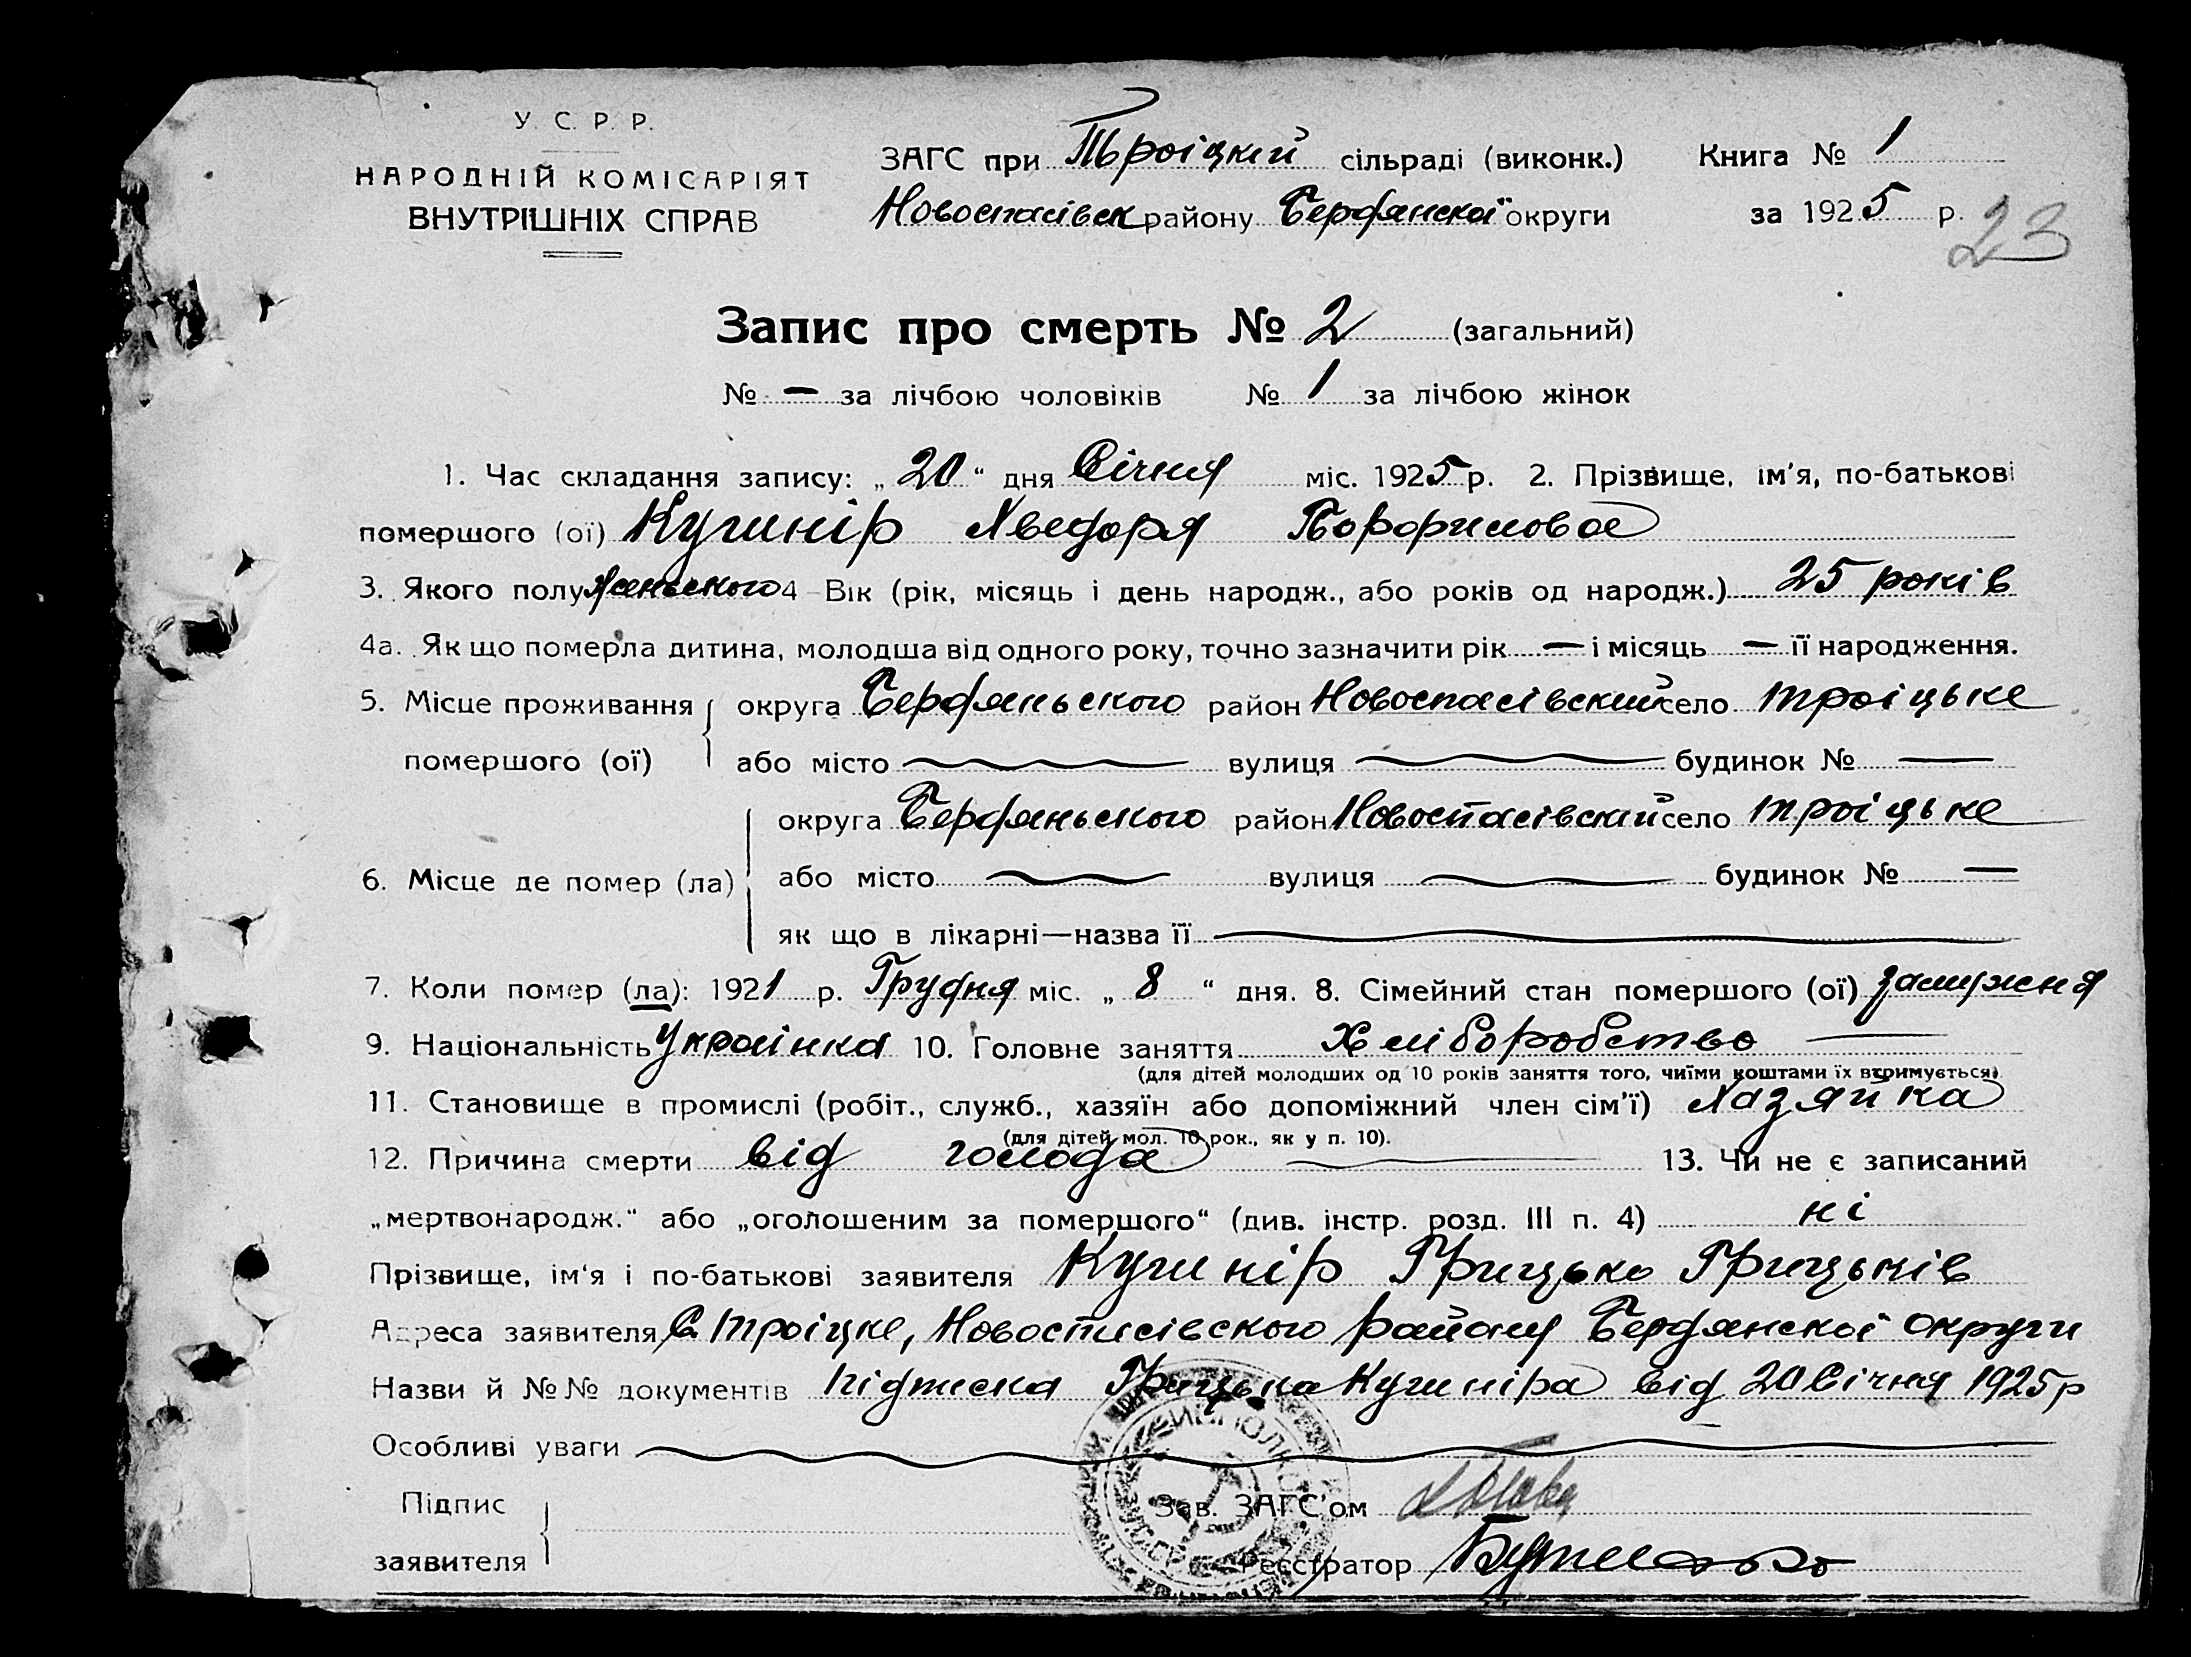 У. С. Р. Р.
НАРОДНІЙ КОМІСАРІЯТ
ВНУТРІШНІХ СПРАВ
ЗАГС при Троіцкій сільраді (виконк.) Книга № 1
Новоспасівск району Бердянскої округи за 1925 р.
23
Запис про смерть № 2 (загальний)
№ — за лічбою чоловіків № 1 за лічбою жінок
1. Час складання запису: „20“ дня Січня міс. 1925 р. 2. Прізвище, ім'я, по-батькові
помершого (ої) Кушнір Хведоря
3. Якого полу женьского 4 Вік (рік, місяць і день народж., або років од народж.) 25 років
4а. Як що померла дитина, молодша від одного року, точно зазначити рік — і місяць — її народження.
5. Місце проживання помершого (ої) округа Бердяньского район Новоспасівский село Троіцьке
або місто вулиця будинок № —
6. Місце де помер (ла) округа Бердяньского район Новоспасівский село Троіцьке
або місто вулиця будинок № —
як що в лікарні—назва її
7. Коли помер (ла): 1921 р. Грудня міс. „8“ дня. 8. Сімейний стан помершого (ої) замужня
9. Національність Украінка 10. Головне заняття Хліборобство
(для дітей молодших од 10 років заняття того, чиїми коштами їх втримується)
11. Становище в промислі (робіт., служб., хазяїн або допоміжний член сім'ї) Хазяйка
(для дітей мол. 10 рок., як у п. 10).
12. Причина смерти від голода 13. Чи не є записаний
„мертвонародж.“ або „оголошеним за помершого“ (див. інстр. розд. III п. 4) ні
Прізвище, ім'я і по-батькові заявителя Кушнір Грицько Грицьків
Адреса заявителя С. Троіцке, Новоспасівского району Бердянскоі округи
Назви й №№ документів підписка Грицька Кушніра від 20 Січня 1925 р
Особливі уваги
Підпис заявителя
Зав. ЗАГС'ом
Реєстратор